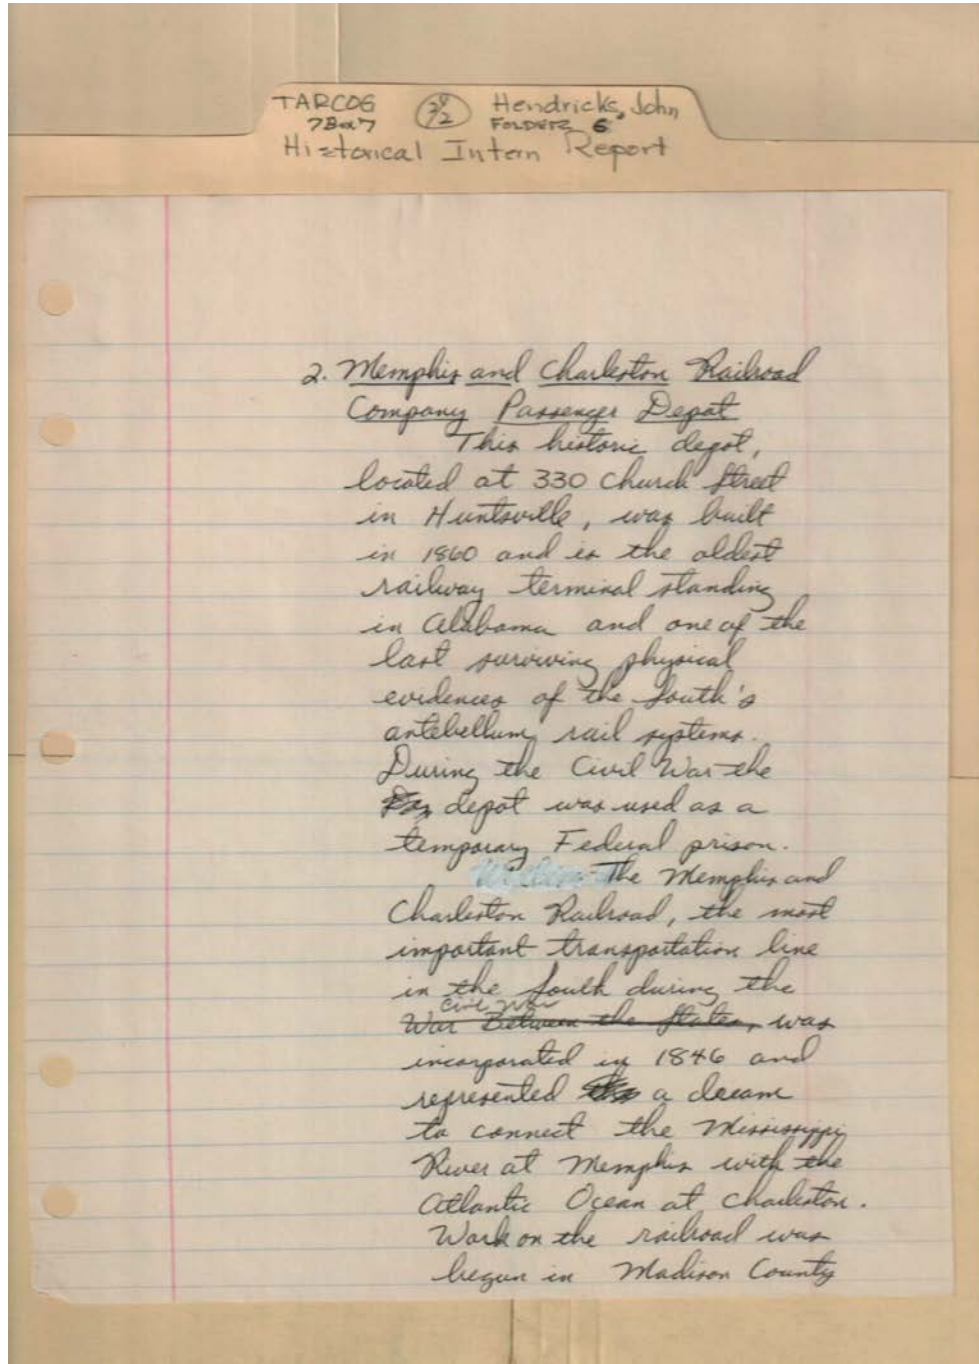 TARCOG Hendricks, John
7B07 FOLDER 6
Historical Intern Report
2. Memphis and Charleston Railroad
Company Passenger Depot
This historic depot,
located at 330 Church Street
in Huntsville, was built
in 1860 and is the oldest
railway terminal standing
in Alabama and one of the
last surviving physical
evidences of the South's
antebellum rail systems.
During the Civil War the
depot was used as a
temporary Federal prison.
The Memphis and
Charleston Railroad, the most
important transportation line
in the South during the
Civil War
War Between the States, was
incorporated in 1846 and
represented a dream
to connect the Mississippi
River at Memphis with the
Atlantic Ocean at Charleston.
Work on the railroad was
begun in Madison County